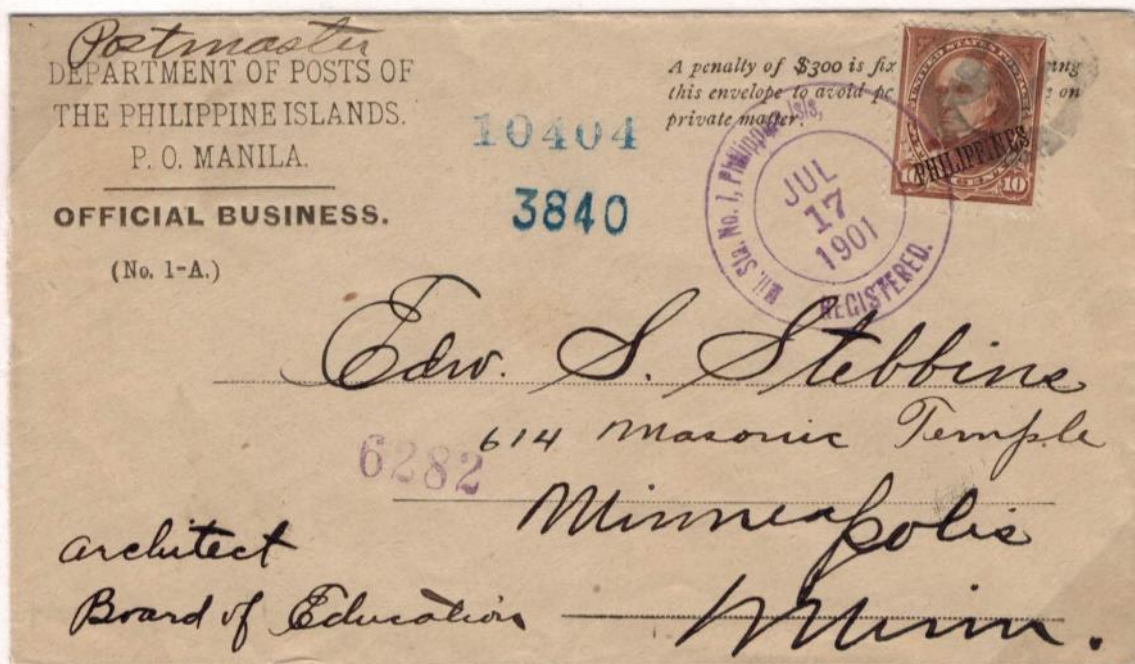 Postmaster
DEPARTMENT OF POSTS OF
THE PHILIPPINE ISLANDS.
P. O. MANILA.
OFFICIAL BUSINESS.
(No. 1-A.)
10404
3840
A penalty of $300 is
this envelope to avoid on
private matter.
Mil. Sta. No. 1, Philippine Isls,
JUL
17
1901
REGISTERED.
UNITED STATES POSTAGE
PHILIPPINES
10
Edw. S. Stebbins
614 Masonic Temple
6282
Minneapolis
Minn.
architect
Board of Education